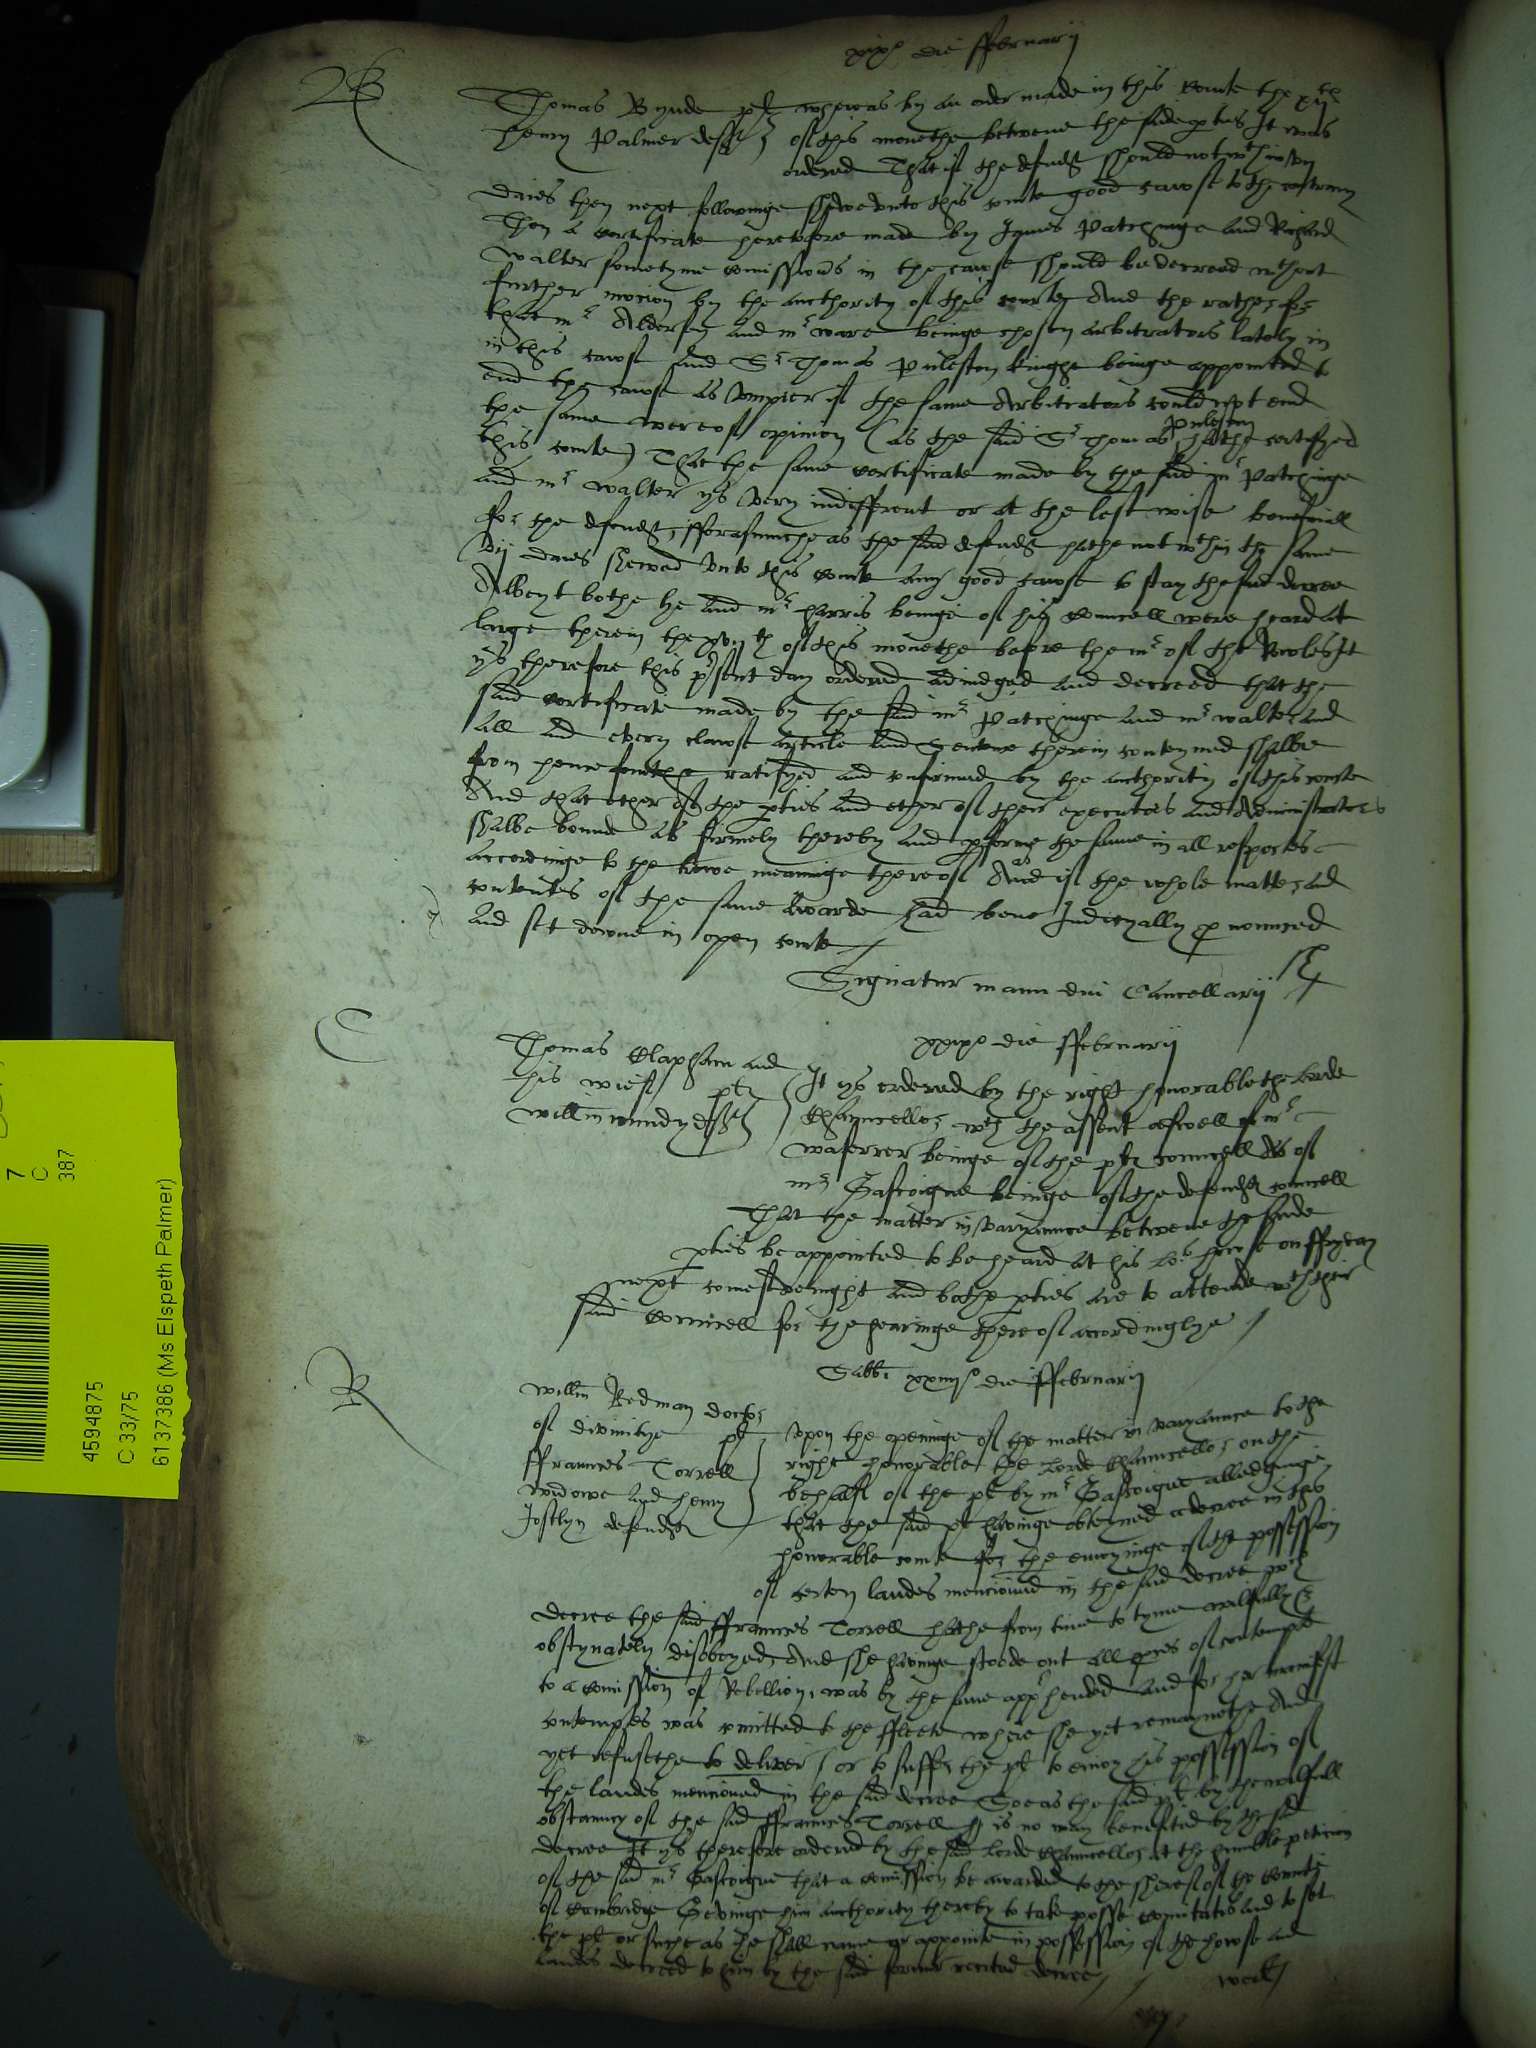 xixo die ffebruarij
B
Thomas Bynde plt whereas by an order made in this Courte the xijth
henry Palmer deft of this monethe betwene the saide pties It was
ordered That if the defendt should not wthin vij
daies then next followinge shewe unto this courte good cawse to the contrary
Then a certificate heretofore made by James Patchinge and Richard
Walter sometyme comissioners in the cawse should be decreed wthout
further mocion by the aucthority of this courte And the rather for
that mr Aldersey and mr ware beinge chosen arbitrators lately in
in this cawse And Sr Thomas Puleston knighte beinge appointed to
end the cawse as Vmpier if the same Arbitrators could not end
the same were of opinion (as the said Sr Thomas Puleston hathe certifyed
this courte) That the same certificate made by the said mr Patchinge
and mr Walter ys very indifferent or at the lest wise beneficiall
for the defendt, fforasmuche as the said defendt hathe not wthin the same
vij daies shewed vnto this courte any good cawse to stay the said decree
Albeyt bothe he and mr harris beinge of his Councell were heard at
large therein the xvijth of this monethe before the mr of the Rooles It
ys therefore this psent day ordered adiudged and decreed that the
said certificate made by the said mr Patchinge and mr walter and
all and every clawse article and Sentence therein conteyned shalbe
from henceforthe ratifyed and confirmed by the aucthority of this courte
And that ether of the pties and ether of their executors and Administrators
shalbe bounde as firmely thereby and pforme the same in all respectes
accordinge to the trewe meaninge thereof And as if the whole matter and
contentes of the same Awarde had bene Judicyally pnounced
and set downe in open courte
Signatur manu dni Cancellarij
C
xxixo die ffebruarij
Thomas Clapham and
his wief plts
Willm mundy deft
It ys ordered by the right honorable the Lorde
Chauncellor wth the assent aswell of mr
waferer beinge of the plts councell As of
mr Gascoigne beinge of the defendts councell
That the matter in varyaunce betwene the saide
pties be appointed to be heard at his Lo: howse on ffryday
next come sevenight and bothe pties are to attende wth their
said Councell for the hearinge thereof accordinglye
Sabbi xxiiijo die ffebruarij
R
Willm Redman doctor
of divinitye plt
ffraunces Torrell
widowe and henry
Joselyn defendts
Vpon the openinge of the matter in varyaunce to the
right honorable the Lorde Chauncellor on the
behalf of the plt by mr Gascoigne alledginge
that the said plt havinge obteyned a decree in this
honorable courte for the enioyinge of the possession
of certen landes mencioned in the said decree wch
decree the said ffraunces Torrell hathe from time to tyme wilfully &
obstynately disobeyed, And she havinge stoode out all pces of contempte
to a Comission of Rebellion, was by the same apphended and for her manifest
contemptes was comitted to the ffleete where she yet remaynethe And
yet refusethe to deliver / or to suffer the plt to enioy his possession of
the landes mencioned in the said decree Soe as the said plt by the wilfull
obstinacy of the said ffraunces Torrell is no way benefited by the said
decree It ys therefore ordered by the said Lorde Chauncellor at the humble peticion
of the said mr Gascoigne that a Comission be awarded to the sheref of the Countie
of Cambridge Gevinge him aucthority thereby to take posse Comitatus And to set
the plt or suche as he shall name or appointe in possession of the howse and
landes decreed to him by the said former recited decree
7
C
387
4594875
C 33/75
6137386 (Ms Elspeth Palmer)